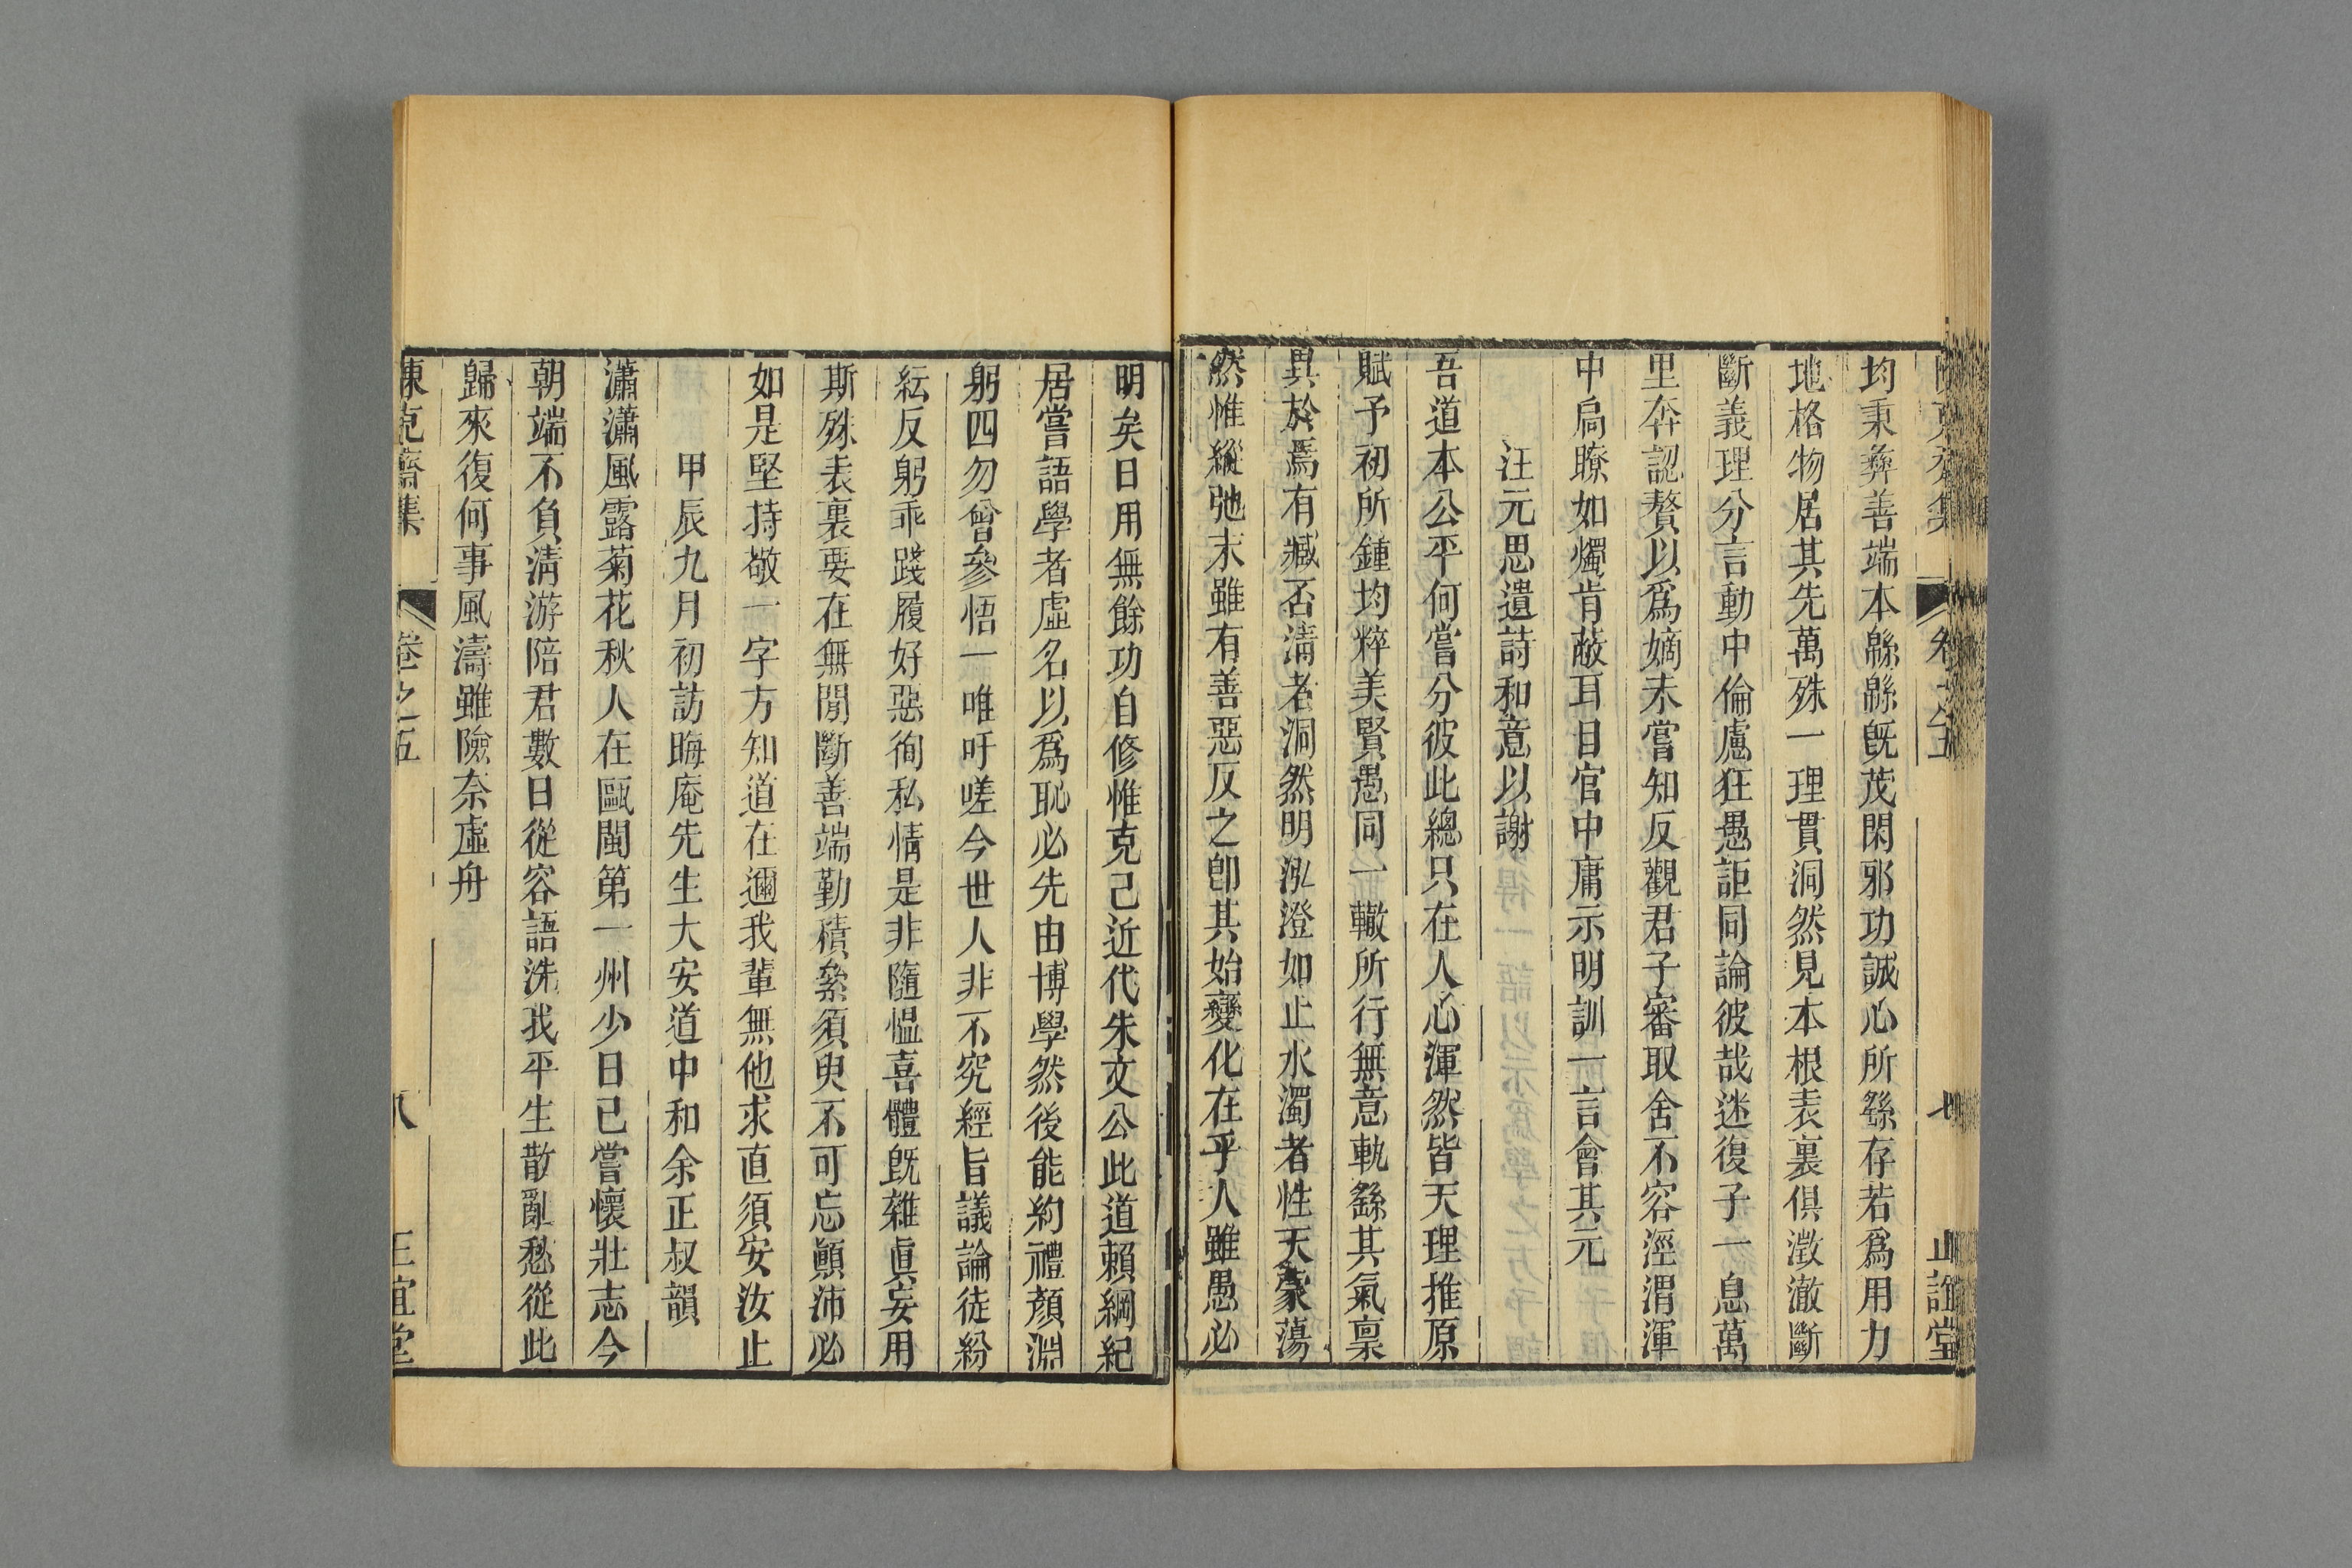 卷之五
七
正誼堂
均秉彝善端本緜緜旣茂閑邪功誠心所繇存若爲用力
地格物居其先萬殊一理貫洞然見本根表裏俱澂澈斷
斷義理分言動中倫慮狂愚詎同論彼哉迷復子一息萬
里奔認贅以爲嫡未嘗知反觀君子審取舍不容涇渭渾
中扃瞭如燭肯蔽耳目官中庸示明訓一言會其元
汪元思遺詩和意以謝
吾道本公平何嘗分彼此總只在人心渾然皆天理推原
賦予初所鍾均粹美賢愚同一轍所行無意軌繇其氣禀
異於焉有臧否淸者洞然明泓澄如止水濁者性天蒙蕩
然惟縱弛末雖有善惡反之卽其始變化在乎人雖愚必
明矣日用無餘功自修惟克己近代朱文公此道賴綱紀
居嘗語學者虛名以爲恥必先由博學然後能約禮顏淵
躬四勿曾參悟一唯吁嗟今世人非不究經旨議論徒紛
紜反躬乖踐履好惡徇私情是非隨慍喜體旣雜眞妄用
斯殊表裏要在無間斷善端勤積絫須臾不可忘顚沛必
如是堅持敬一字方知道在邇我輩無他求直須安汝止
甲辰九月初訪晦庵先生大安道中和余正叔韻
瀟瀟風露菊花秋人在甌閩第一州少日已嘗懷壯志今
朝端不負淸游陪君數日從容語洗我平生散亂愁從此
歸來復何事風濤雖險奈虛舟
陳克齋集
卷之五
八
正誼堂